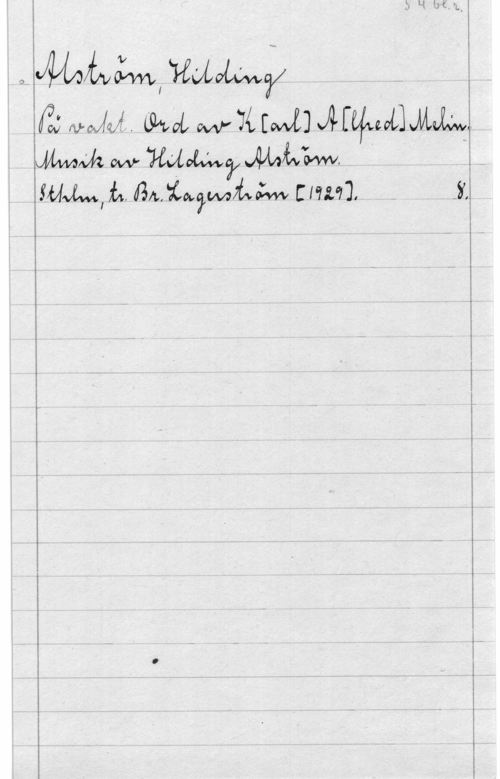 Alström, Hilding
På vakt. Ord av K[arl] A[lfred] Melin.
Musik av Hilding Alström.
Sthlm, tr. Br. Lagerström [1929]. 8.